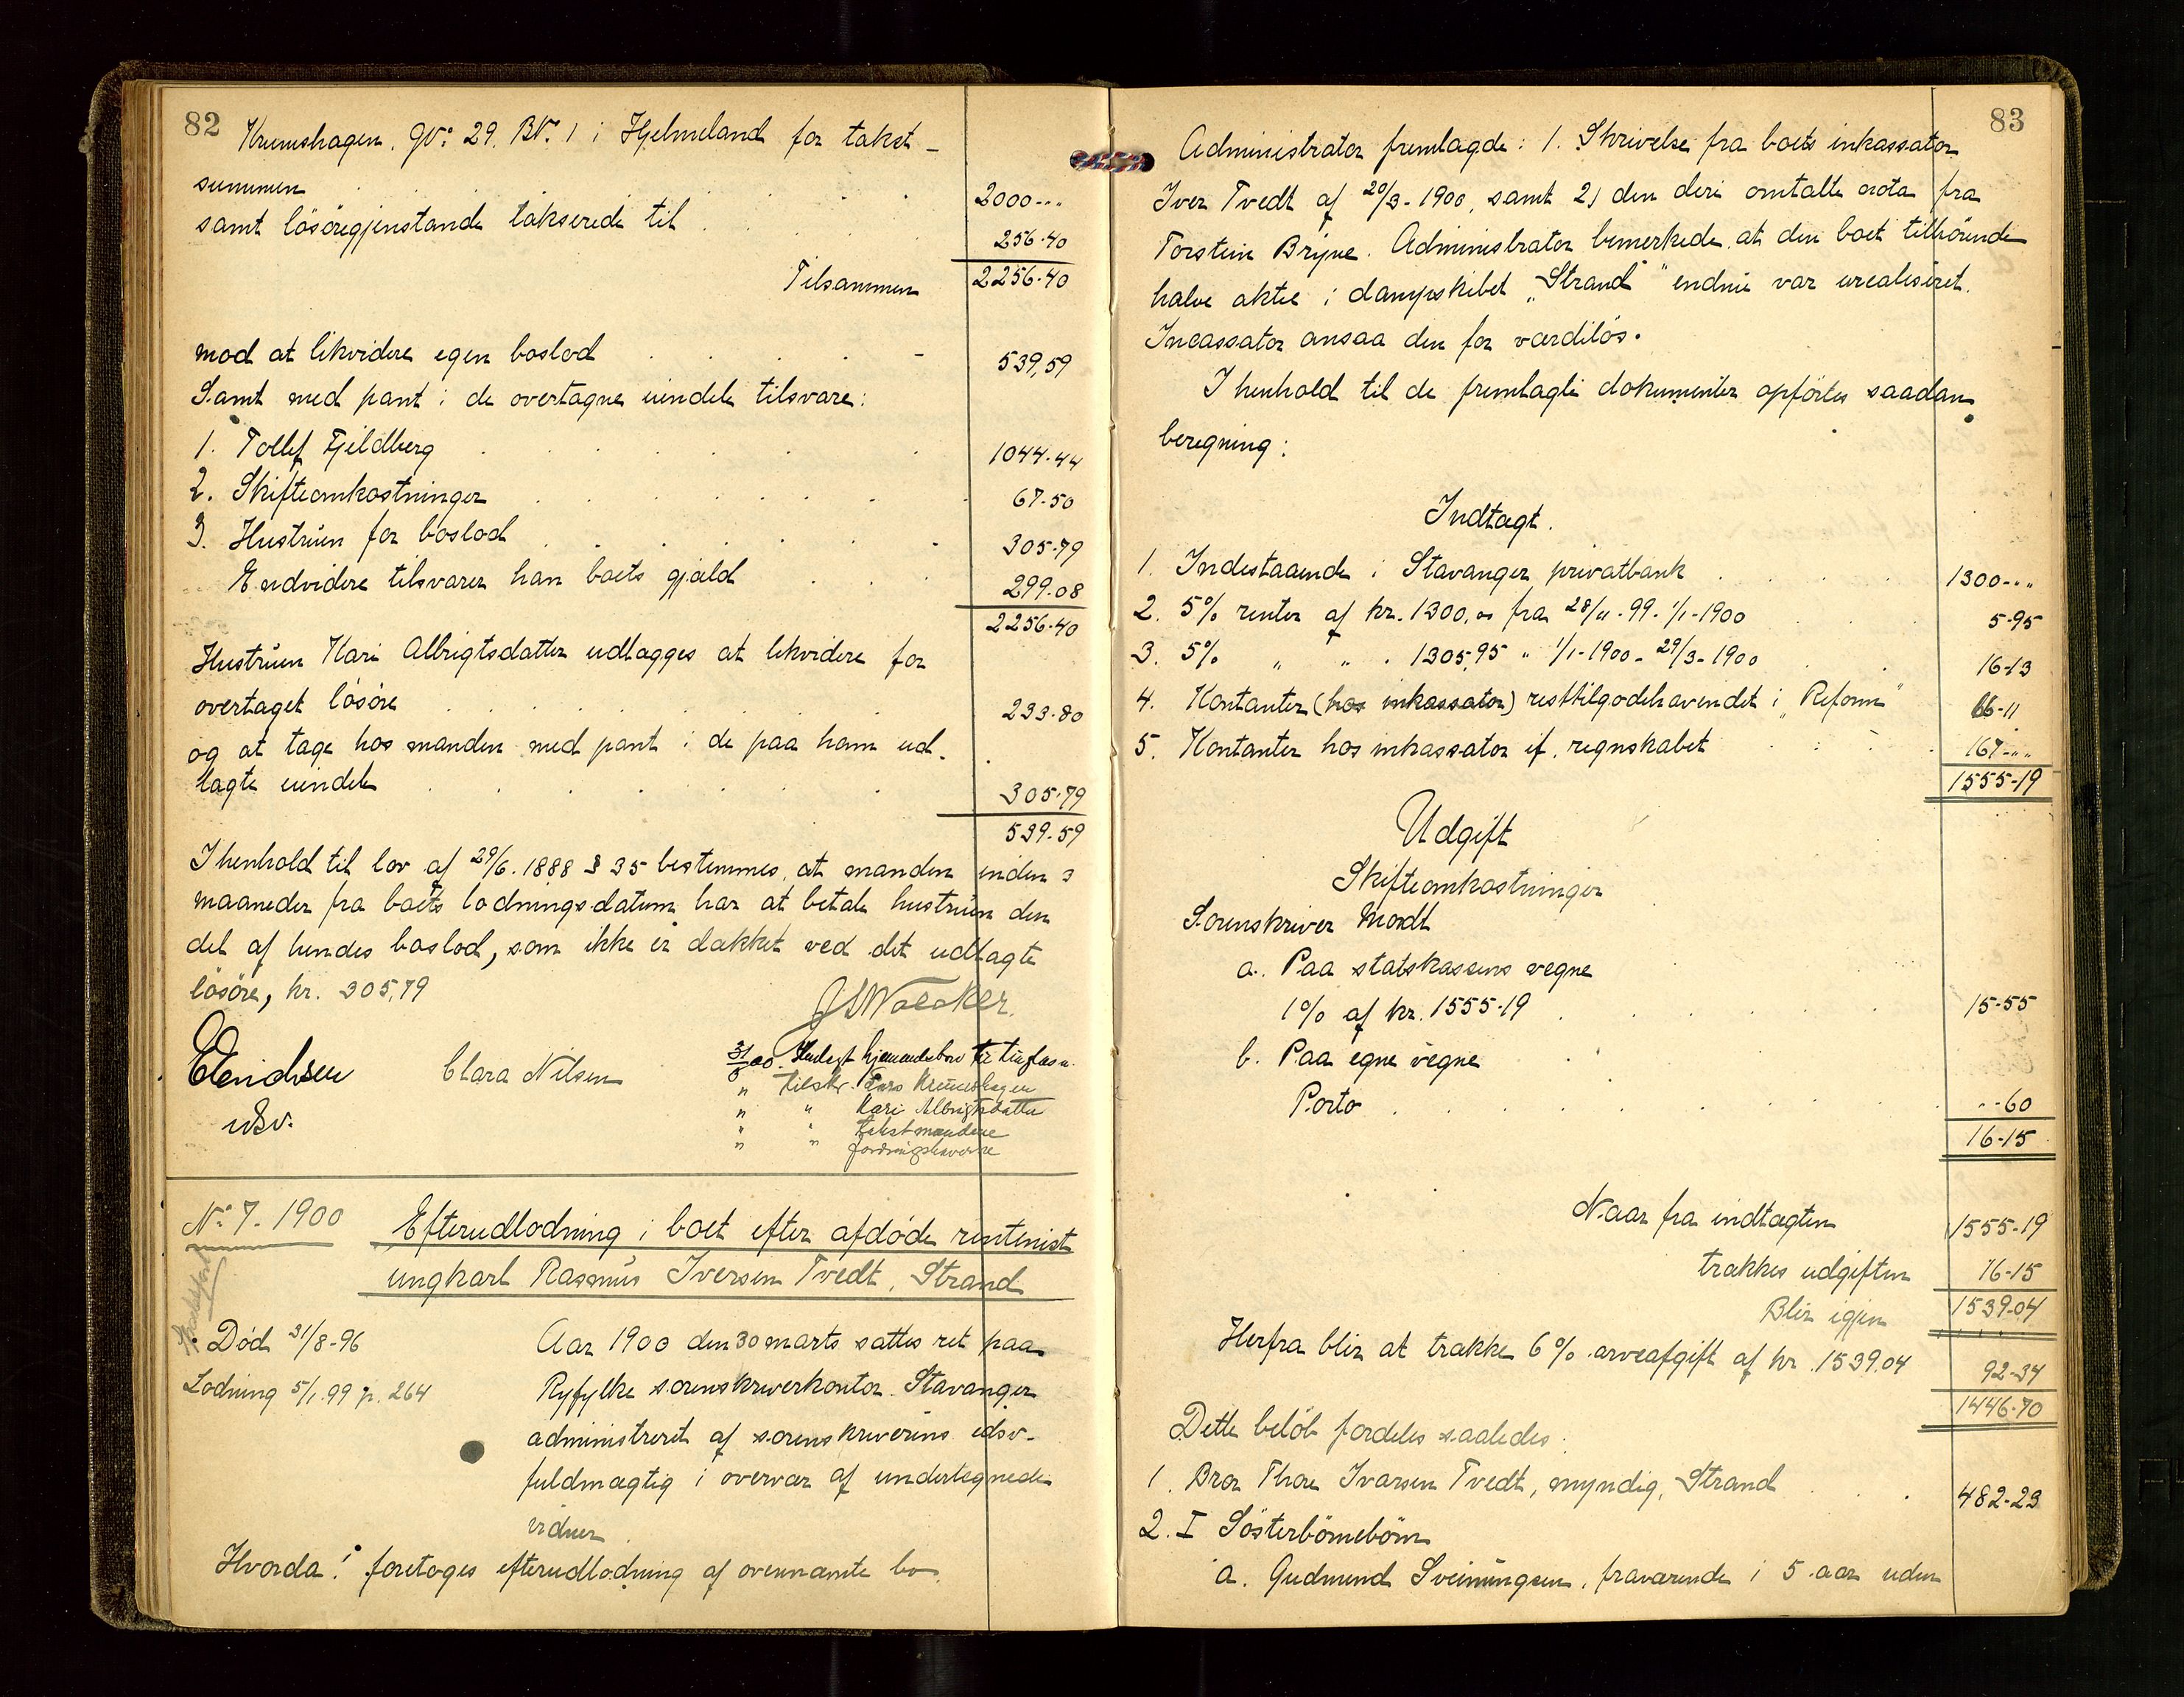 82
Krumshagen. GN: 29. BN. 1 i Hjelmeland for takst-
summen 2000-"
samt lösöregjenstande takserede til 256.40
Tilsammen 2256.40
mod at likvidere egen boslod 539,59
Samt med pant i de overtagne eiendele tilsvare:
1. Tollef Fjeldberg 1044.44
2. Skifteomkostninger 67.50
3. Hustruen for boslod 305.79
Endvidere tilsvarer han boets gjæld 299.08
2256.40
Hustruen Kari Albrigtsdatter udlægges at likvidere for
overtaget lösöre 233.80
og at tage hos manden med pant i de paa ham ud-
lagte eiendele 305.79
539.59
I henhold til lov af 29/6.1888 § 35 bestemmes, at manden inden 3
maaneder fra boets lodningsdatum har at betale hustruen den
del af hendes boslod, som ikke er dækket ved det udlagte
lösöre, kr. 305,79
Clara Nilsen
" tilskr. Lars Krumshagen
" " Kari Albrigtsdatter
" " takstmændene
" " fordringshaverne
No 7. 1900 Efterudlodning i boet efter afdöde rentenist
ungkarl Rasmus Iversen Tvedt, Strand
Död 31/8-96 Aar 1900 den 30 marts sattes ret paa
Lodning 5/1.99 p. 264 Ryfylke sorenskriverkontor Stavanger
administreret af sorenskriverens edsv.
fuldmægtig i overvær af undertegnede
vidner
Hvorda: foretoges efterudlodning af ovennævnte bo.
83
Administrator fremlagde: 1. Skrivelse fra boets inkassator
Iver Tvedt af 20/3-1900, samt 2) den deri omtalte nota fra
Torstein Bryne. Administrator bemerkede, at den boet tilhörende
halve aktie i dampskibet "Strand" endnu var urealiseret.
Incassator ansaa den for værdilös.
I henhold til de fremlagte dokumenter opförtes saadan
beregning:
Indtægt.
1. Indestaaende i Stavanger privatbank 1300-"
2. 5% renter af kr. 1300,00 fra 28/11-99-1/1-1900 5-95
3. 5% " " . 1305,95 " 1/1-1900-29/3-1900 16-13
4. Kontanter (hos inkassator) resttilgodehavendet i "Reform" 66-11
5. Kontanter hos inkassator if. regnskabet 167-"
1555-19
Udgift
Skifteomkostninger
Sorenskriver Modt
a. Paa statskassens vegne
1% af kr. 1555-19 15-55
b. Paa egne vegne
Porto "-60
16-15
Naar fra indtægten 1555-19
trækkes udgiften 16-15
Blir igjen 1539-04
Herfra blir at trække 6% arveafgift af kr. 1539.04 92-34
1446-70
Dette belöb fordeles saaledes:
1. Bror Thore Ivarsen Tvedt, myndig, Strand 482-23
2. I Sösterbörnebörn
a. Gudmund Sveinungsen, fraværende i 5 aar uden